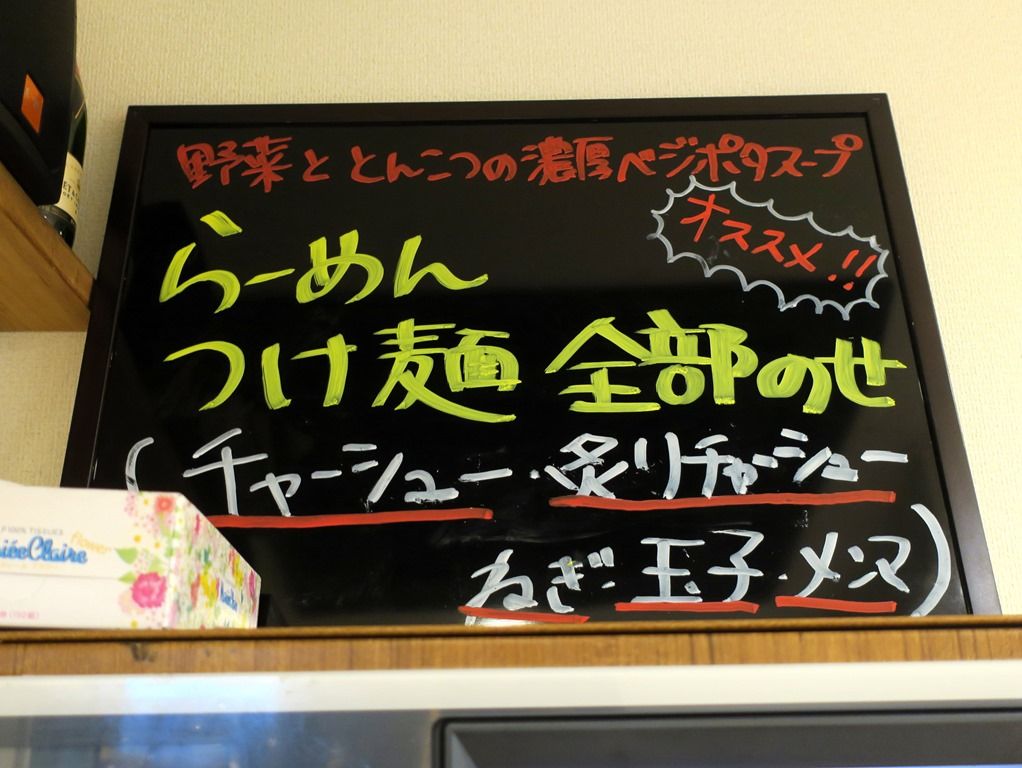 野菜ととんこつの濃厚ベジポタスープ
オススメ!!
らーめん
つけ麺 全部のせ
(チャーシュー・炙りチャーシュー
ねぎ・玉子・メンマ)
100% TISSUES
Claire
flower